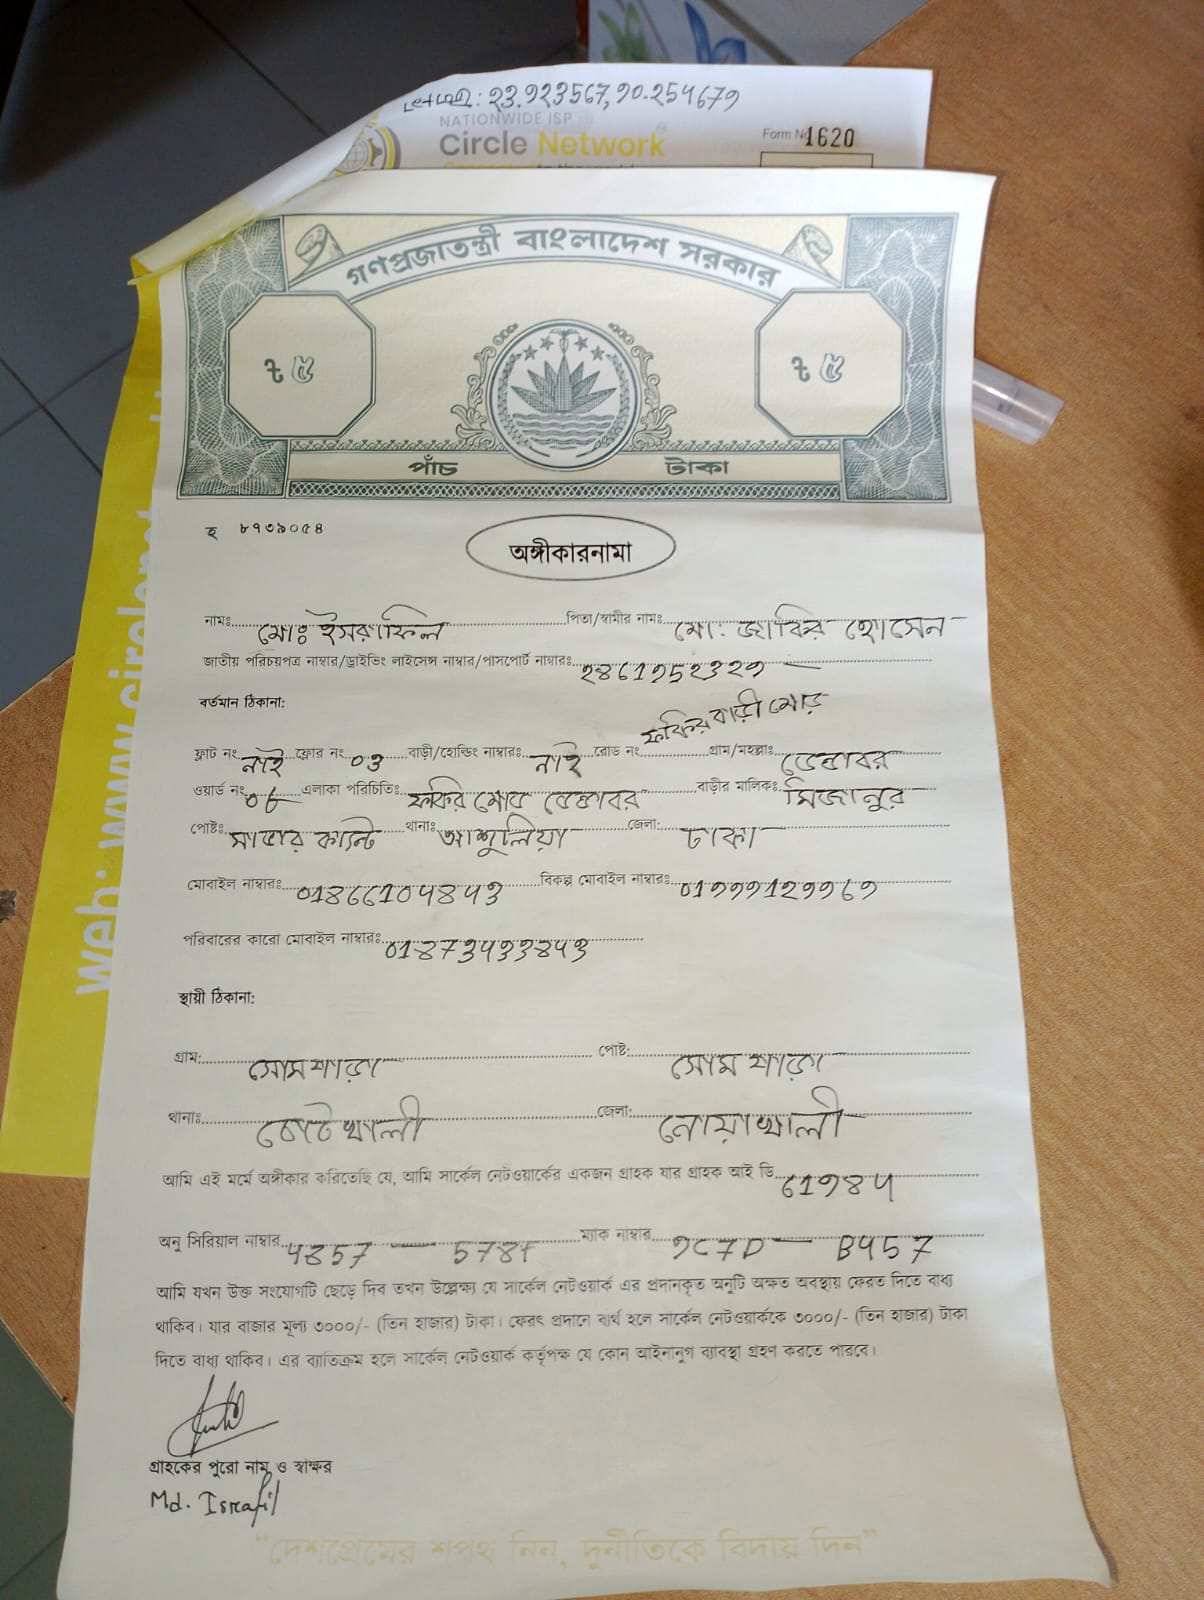 লোকেশন: 23.923567,90.254679
NATIONWIDE ISP
Circle Network
Form No 1620
গণপ্রজাতন্ত্রী বাংলাদেশ সরকার
৳ ৫ ৳ ৫
পাঁচ টাকা
হ ৮৭৩৯০৫৪
অঙ্গীকারনামা
নামঃ মোঃ ইসরাফিল পিতা/স্বামীর নামঃ মো: জাকির হোসেন
জাতীয় পরিচয়পত্র নাম্বার/ড্রাইভিং লাইসেন্স নাম্বার/পাসপোর্ট নাম্বারঃ
বর্তমান ঠিকানা:
ফকির বাড়ী মোড়
ফ্লাট নং নাই ফ্লোর নং 03 বাড়ী/হোল্ডিং নাম্বারঃ নাই রোড নং গ্রাম/মহল্লাঃ ডেন্ডাবর
ওয়ার্ড নং 06 এলাকা পরিচিতিঃ ফকির মোড় ডেন্ডাবর বাড়ীর মালিকঃ মিজানুর
পোষ্টঃ সাভার ক্যান্ট থানাঃ আশুলিয়া জেলা: ঢাকা
মোবাইল নাম্বারঃ বিকল্প মোবাইল নাম্বারঃ
পরিবারের কারো মোবাইল নাম্বারঃ
স্থায়ী ঠিকানা:
গ্রাম: সোমপাড়া পোষ্ট: সোমপাড়া
থানাঃ চাটখালী জেলা: নোয়াখালী
আমি এই মর্মে অঙ্গীকার করিতেছি যে, আমি সার্কেল নেটওয়ার্কের একজন গ্রাহক যার গ্রাহক আই ডি 61984
অনু সিরিয়াল নাম্বার 4857 — 578F ম্যাক নাম্বার 9C7D — B457
আমি যখন উক্ত সংযোগটি ছেড়ে দিব তখন উল্লেক্ষ্য যে সার্কেল নেটওয়ার্ক এর প্রদানকৃত অনুটি অক্ষত অবস্থায় ফেরত দিতে বাধ্য
থাকিব। যার বাজার মূল্য ৩০০০/- (তিন হাজার) টাকা। ফেরৎ প্রদানে ব্যর্থ হলে সার্কেল নেটওয়ার্ককে ৩০০০/- (তিন হাজার) টাকা
দিতে বাধ্য থাকিব। এর ব্যতিক্রম হলে সার্কেল নেটওয়ার্ক কর্তৃপক্ষ যে কোন আইনানুগ ব্যবস্থা গ্রহণ করতে পারবে।
গ্রাহকের পুরো নাম ও স্বাক্ষর
Md. Israfil
"দেশপ্রেমের শপথ নিন, দুর্নীতিকে বিদায় দিন"
web: www.circlenet